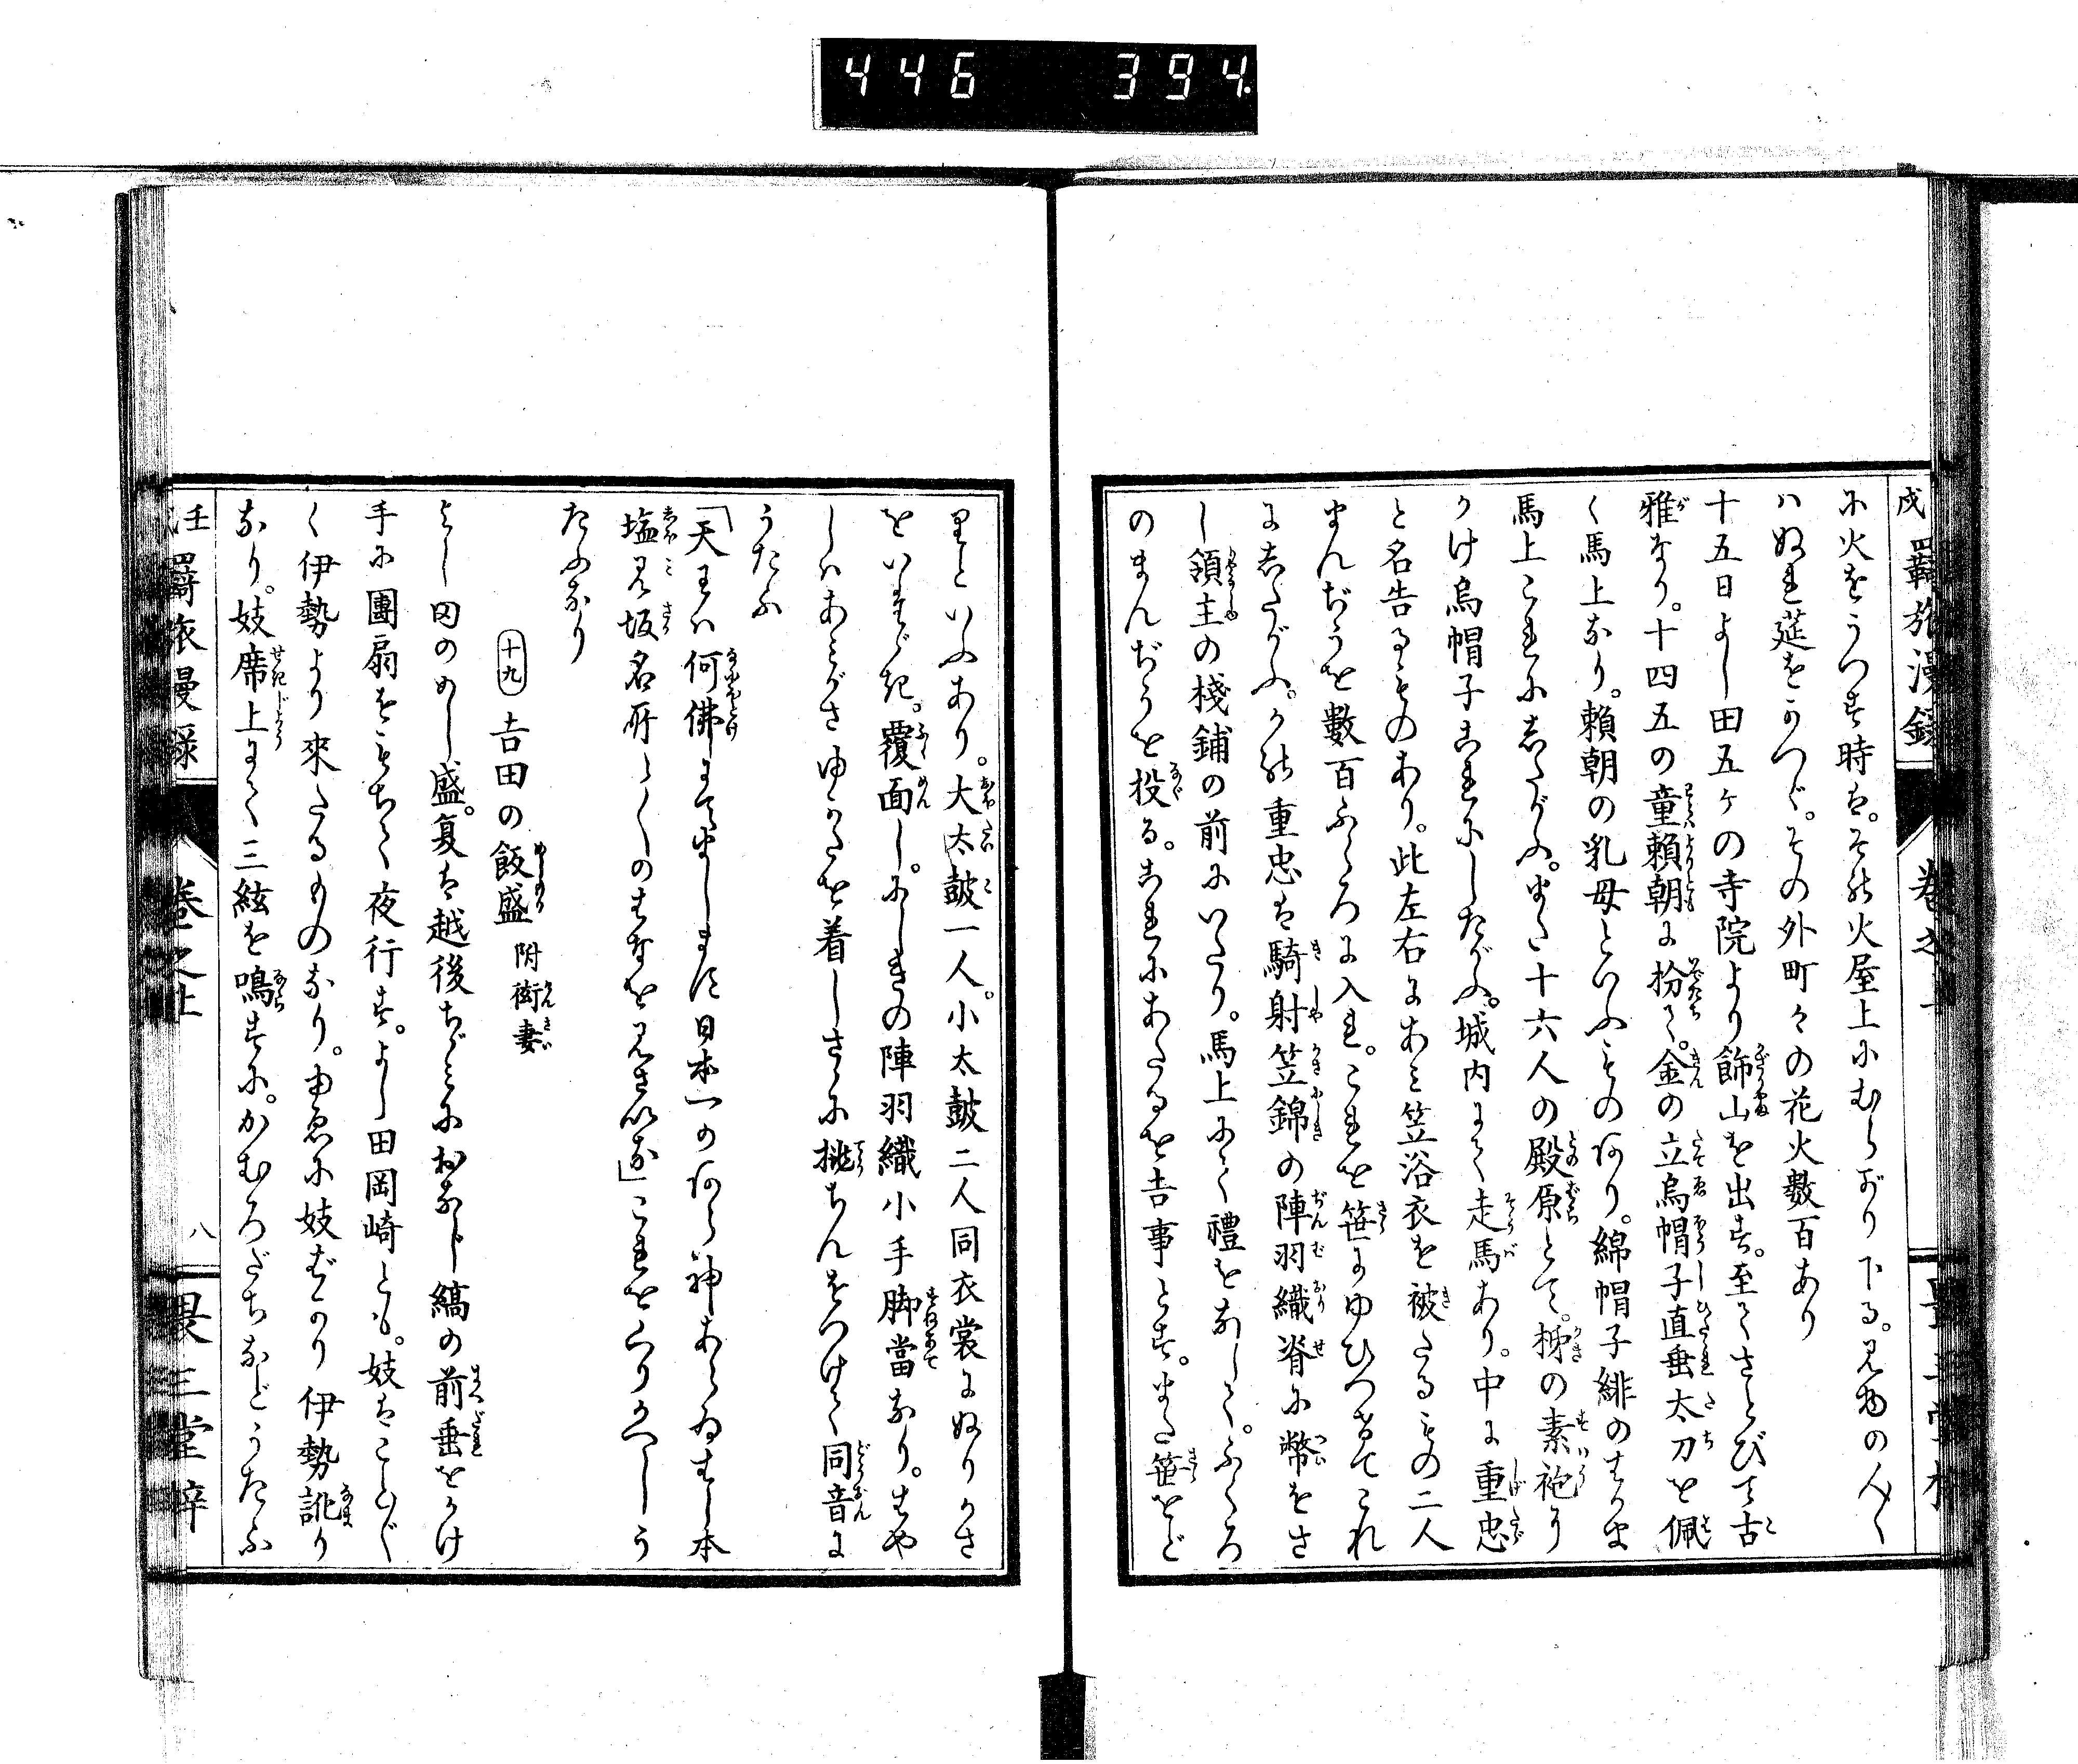 446 394
戌羇旅漫録 巻之上
に火をうつす時は。その火屋上にむらがり下る。見物の人〳〵
ハぬれ莚をかつぐ。その外町々の花火數百あり
十五日よし田五ヶの寺院より飾山を出す。至てさとびて古
雅なり。十四五の童賴朝に扮て。金の立烏帽子直垂太刀を佩
く馬上なり。賴朝の乳母といふものあり。綿帽子緋のはかま
馬上これにしたがふ。また十六人の殿原とて。柹の素袍り
かけ烏帽子これにしたがふ。城内にて走馬あり。中に重忠
と名告るものあり。此左右にあミ笠浴衣を被たるもの二人
まんぢうを數百ふくろに入れ。これを笹にゆひつけてこれ
にしたがふ。かの重忠は騎射笠錦の陣羽織脊に幣をさ
し領主の棧鋪の前にいたり。馬上にて禮をなして。ふくろ
のまんぢうを投る。これにあたるを吉事とす。また笹をど
りといふあり。大太鼓一人。小太鼓二人同衣裳にぬりかさ
をいたゞき。覆面し。にしきの陣羽織小手脚當なり。はや
しハあミがさゆかたを着しさゝに挑ちんをつけて同音に
うたふ
「天王ハ何佛にてましますぞ日本一のあら神あらゐすし本
塩見坂名所〳〵のはなを見さいな」これをくりかへしう
たふなり
十九 吉田の飯盛 附衒妻
よし田のめし盛。夏は越後ちゞミにおなじ縞の前垂をかけ
手に團扇をもちて夜行す。よし田岡崎とも。妓はこと〴〵
く伊勢より來たるものなり。ゆゑに妓ばかり伊勢訛り
なり。妓席上にて三絃を鳴すに。かむろだちなどうたふ
壬戌羇旅漫録 巻之上 八 畏三堂梓